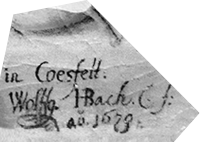 in Coesfelt.
Wolffg. IBach. C f:
aō. 1673.